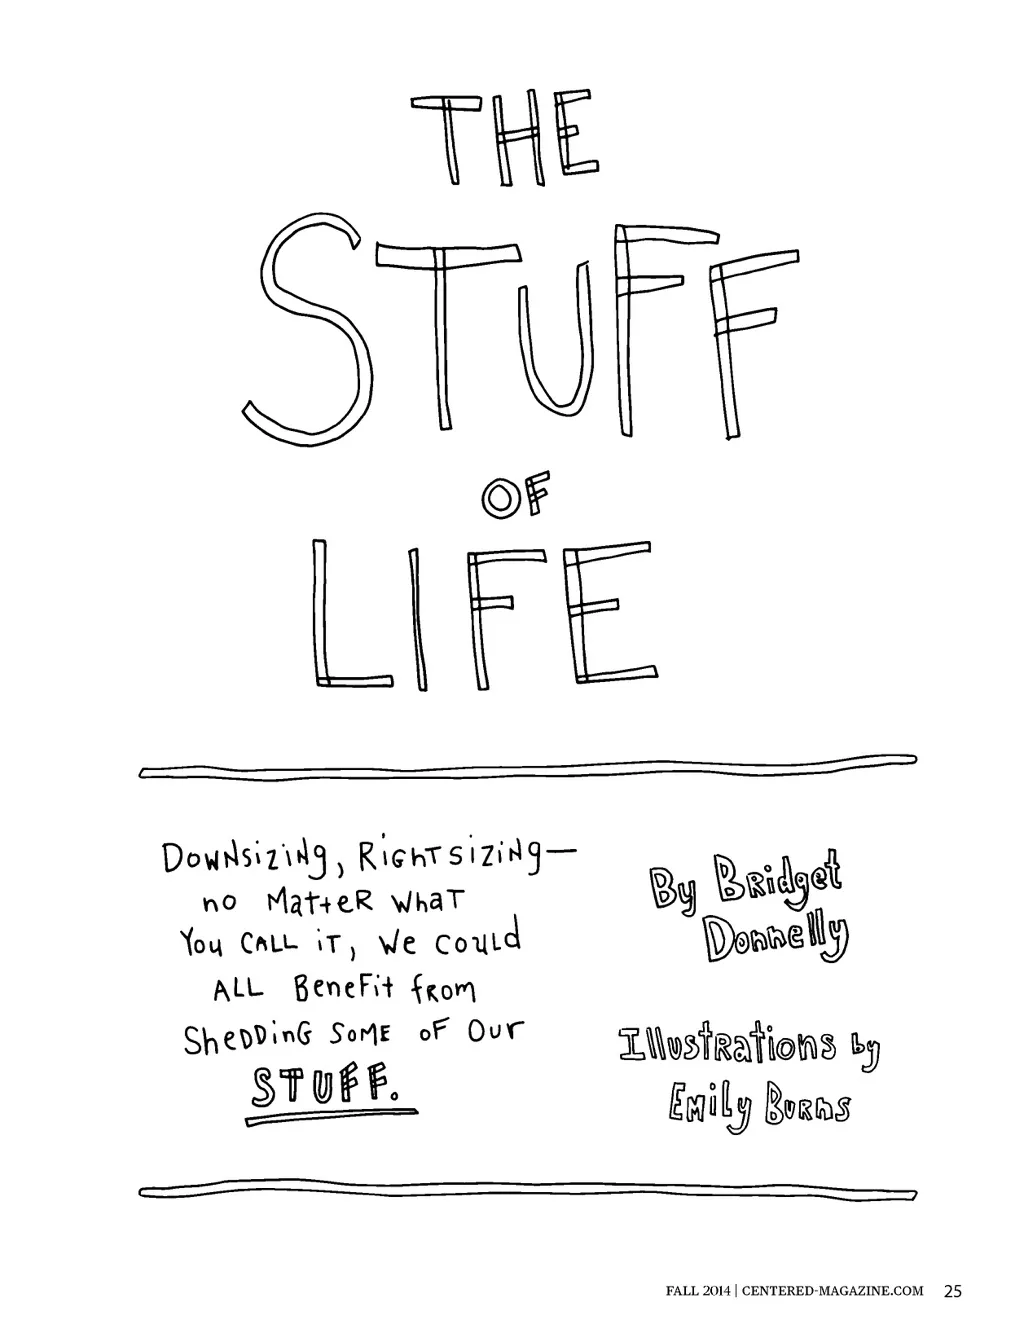 THE
STUFF
OF
LIFE
Downsizing, Rightsizing—
no Matter what
You CALL iT, We Could
ALL Benefit from
Shedding Some of Our
STUFF.
By Bridget
Donnelly
Illustrations by
Emily Burns
FALL 2014 | CENTERED-MAGAZINE.COM 25